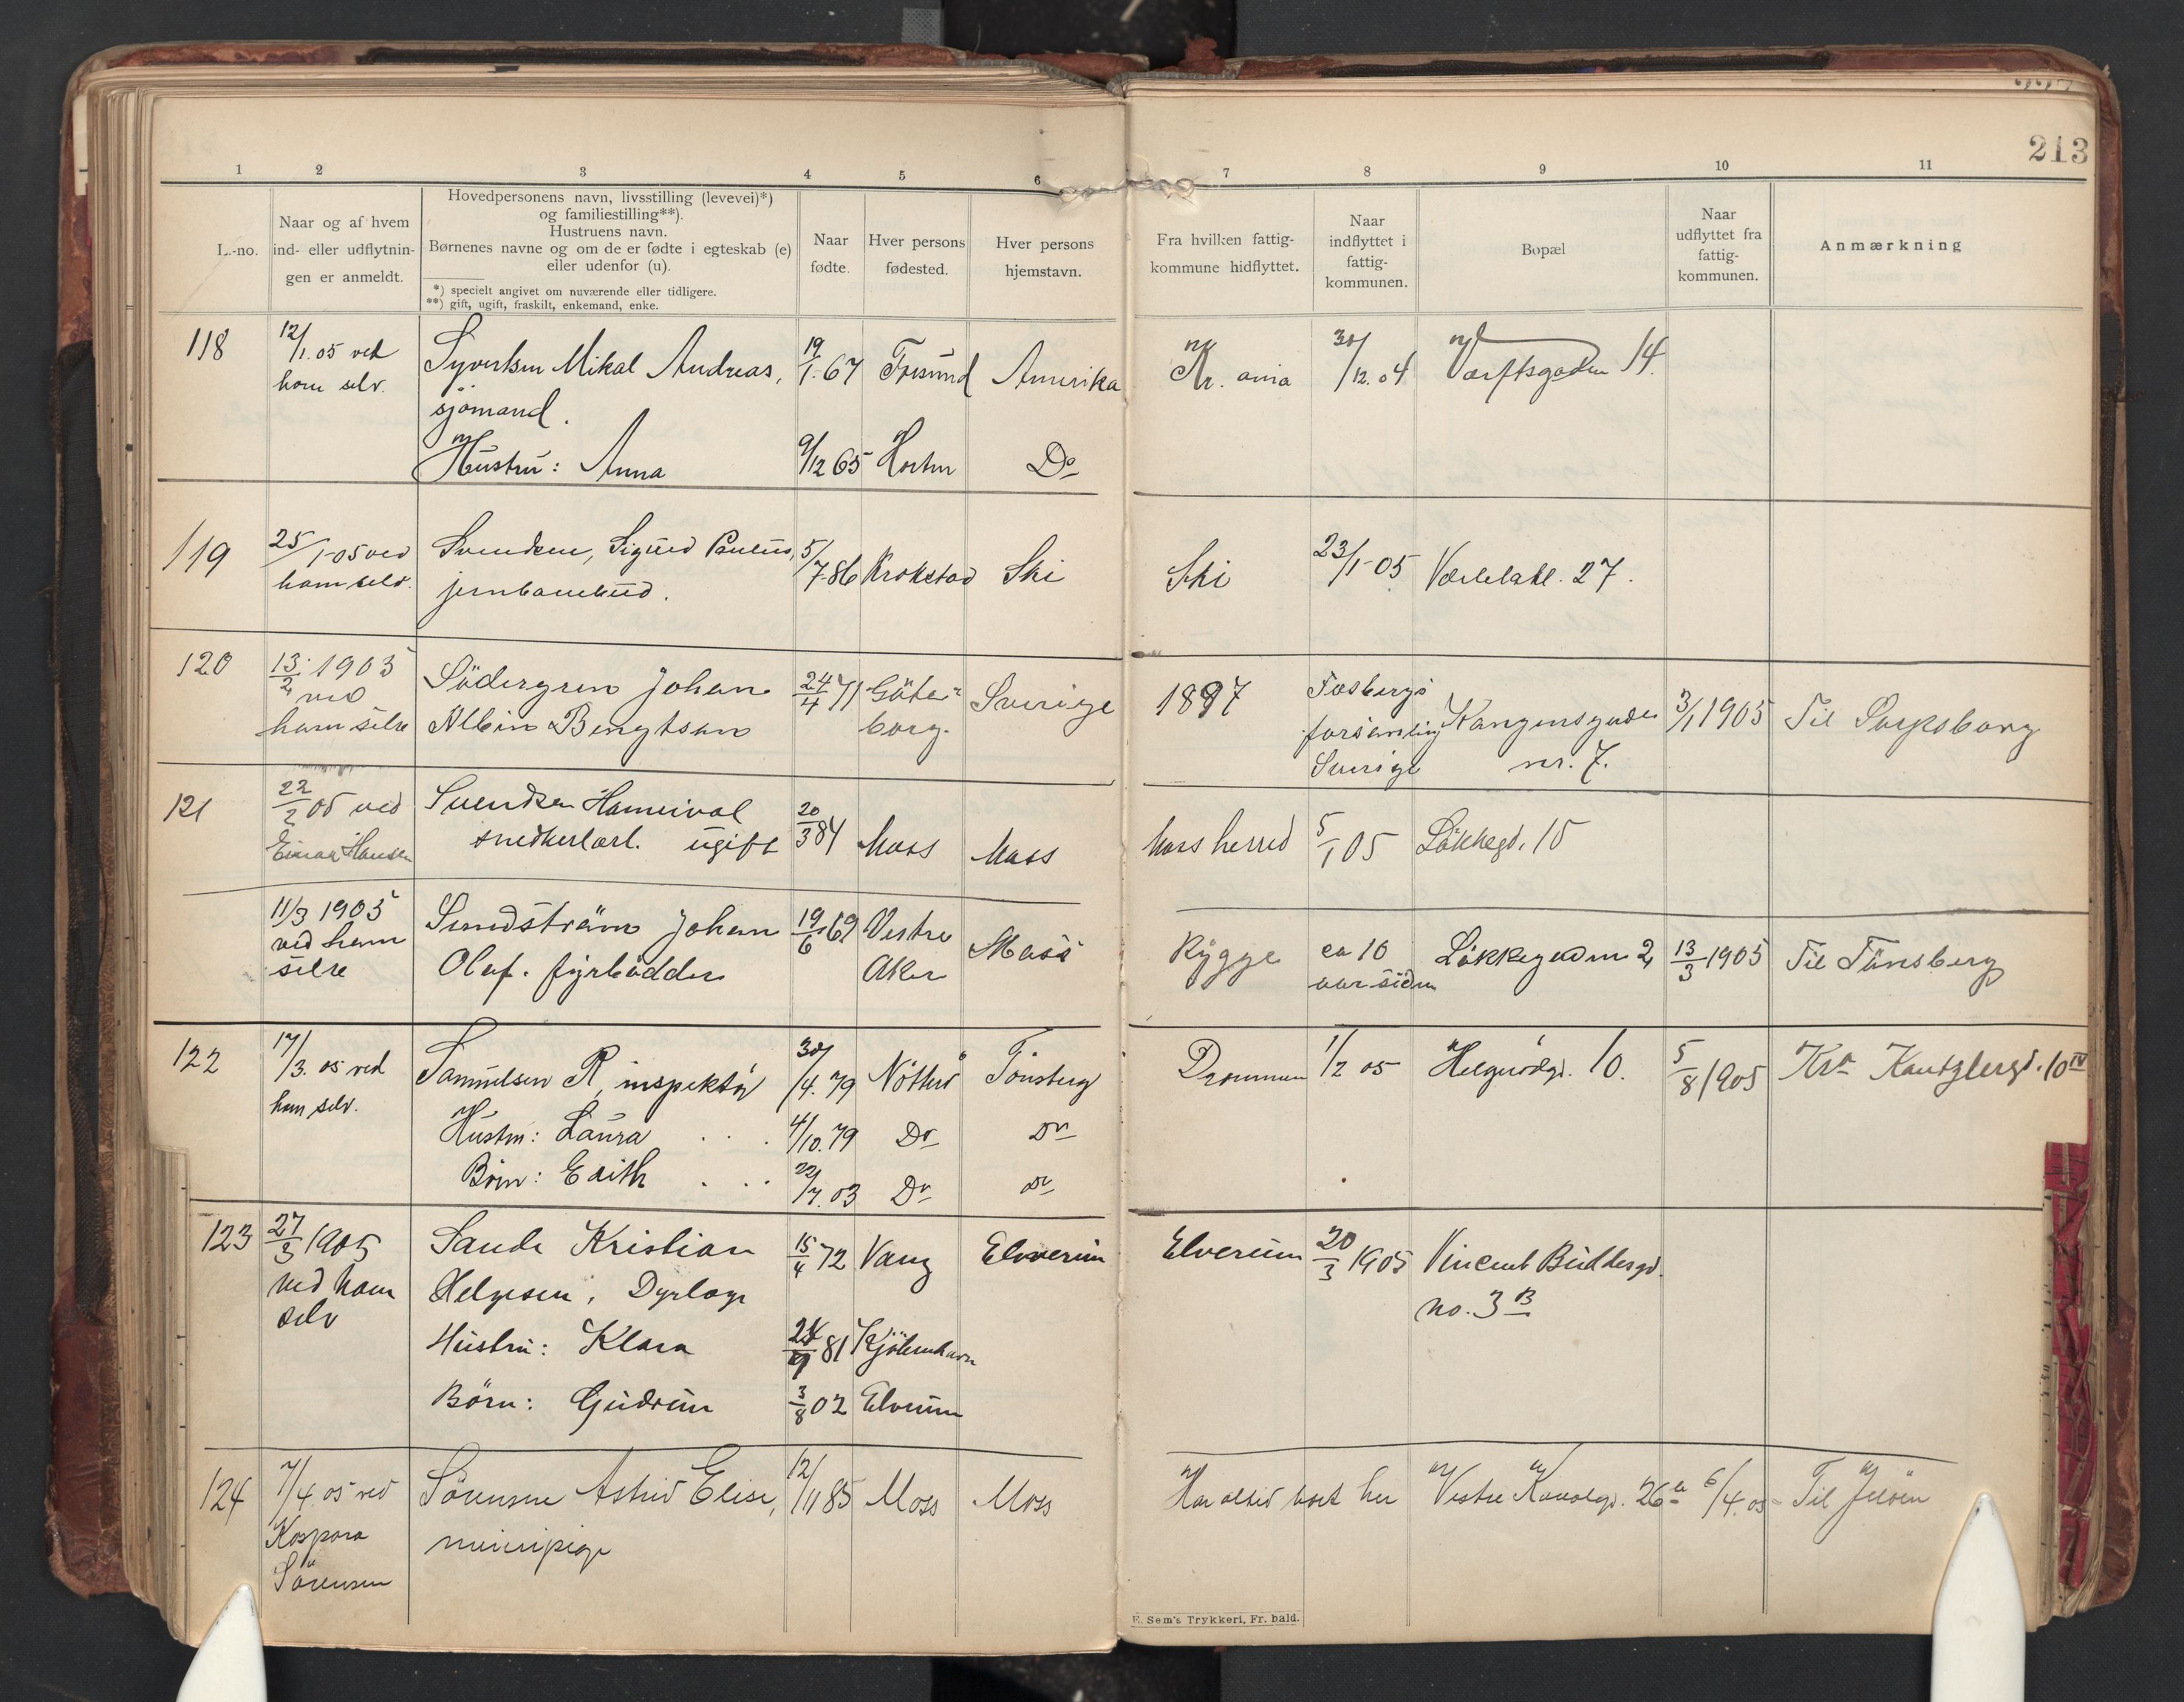 213
1 2 3 4 5 6 7 8 9 10 11
L.-no.
Naar og af hvem
ind- eller udflytnin-
gen er anmeldt.
Hovedpersonens navn, livsstilling (levevei)*)
og familiestilling**).
Hustruens navn.
Børnenes navne og om de er fødte i egteskab (e)
eller udenfor (u).
*) specielt angivet om nuværende eller tidligere.
**) gift, ugift, fraskilt, enkemand, enke.
Naar
fødte.
Hver persons
fødested.
Hver persons
hjemstavn.
Fra hvilken fattig-
kommune hidflyttet.
Naar
indflyttet i
fattig-
kommunen.
Bopæl
Naar
udflyttet fra
fattig-
kommunen.
Anmærkning
118 12/1.05 ved Syvertsen Mikal Andreas, 19/1.67 Amerika Kr.ania 30/12.04 Værftsgaden 14.
ham selv.
sjömand.
Hustru: Anna 9/12 65 Horten Do
119 25/1-05 ved Svendsen, Sigurd Paulus, 5/7-86 Krokstad Ski Ski 23/1-05 27.
ham selv. jernbanebud.
120 13/2 1905 Södergren Johan 24/4 71 Göte- Sverige 1897 3/1 1905 Til Sarpsborg
ved
ham selve Albin Bengtson borg. forsamling Kongensgade
Sverige nr. 7.
121 22/2 05 ved Svendsen Hannival 20/3 84 Moss Moss Moss herred 5/1 05 Lökkegd. 15
Einar Hansen snedkerlærl. ugift
11/3 1905 Sundström Johan 19/6 69 Vestre Moss Rygge ca 10 Lökkegaden 2 13/3 1905 Til Tönsberg
ved ham
selve Olaf. fyrbödder Aker aar siden
122 17/3.05 ved Samuelsen R, inspektör 30/4.79 Nötterö Tönsberg Drammen 1/2 05 Helgerödgd. 10. 5/8 1905 Kra 10 IV
ham selv.
Hustru: Laura . . . 4/10.79 Do Do
Börn: Edith . . . 22/7.03 Do Do
123 27/3 1905 Sande Kristian 15/4 72 Vang Elverum Elverum 20/3 1905 Vincent Buddesgd.
ved ham Helgesen, Dyrlæge no. 3 B
selv
Hustru: Klara 81 Kjöbenhavn
Börn: Gudrun 3/8 02 Elverum
124 7/4.05 ved Sörensen Astrid Elise, 12/11 85 Moss Moss Har altid boet her Vestre Kanalgd. 26 a 6/4.05 Til Jelöen
Kaspara
Sörensen
E. Sem's Trykkeri, Fr. hald.